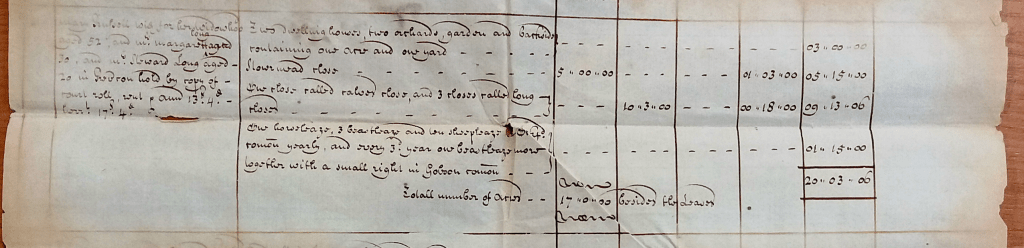 wid. for her widowhood Two dwelling houses, two orchards, garden and backside
aged 52, and mr. margarett aged long containing one acre and one yard - - - - - - 03 " 00 " 00
30, and mr. Steward Long aged - Slowrmead close - - - 5 " 00 " 00 - - - - - - 01 " 03 " 00 05 " 15 " 00
20 in hold by copy of - One close called calves close, and 3 closes called Long
court roll, rent p ann 13s. 4d. closes - - - 10 " 3 " 00 - - - 00 " 18 " 00 09 " 13 " 06
herr. 17s. 4d. One horseleaze, 3 beastleaze and sheepleaze in
comon yearly, and every 3d. year one beastleaze more - - - 01 " 15 " 00
together with a small right in comon - -
20 " 03 " 06
Totall number of Acres - - 17 " 0 " 00 besides the Leazes